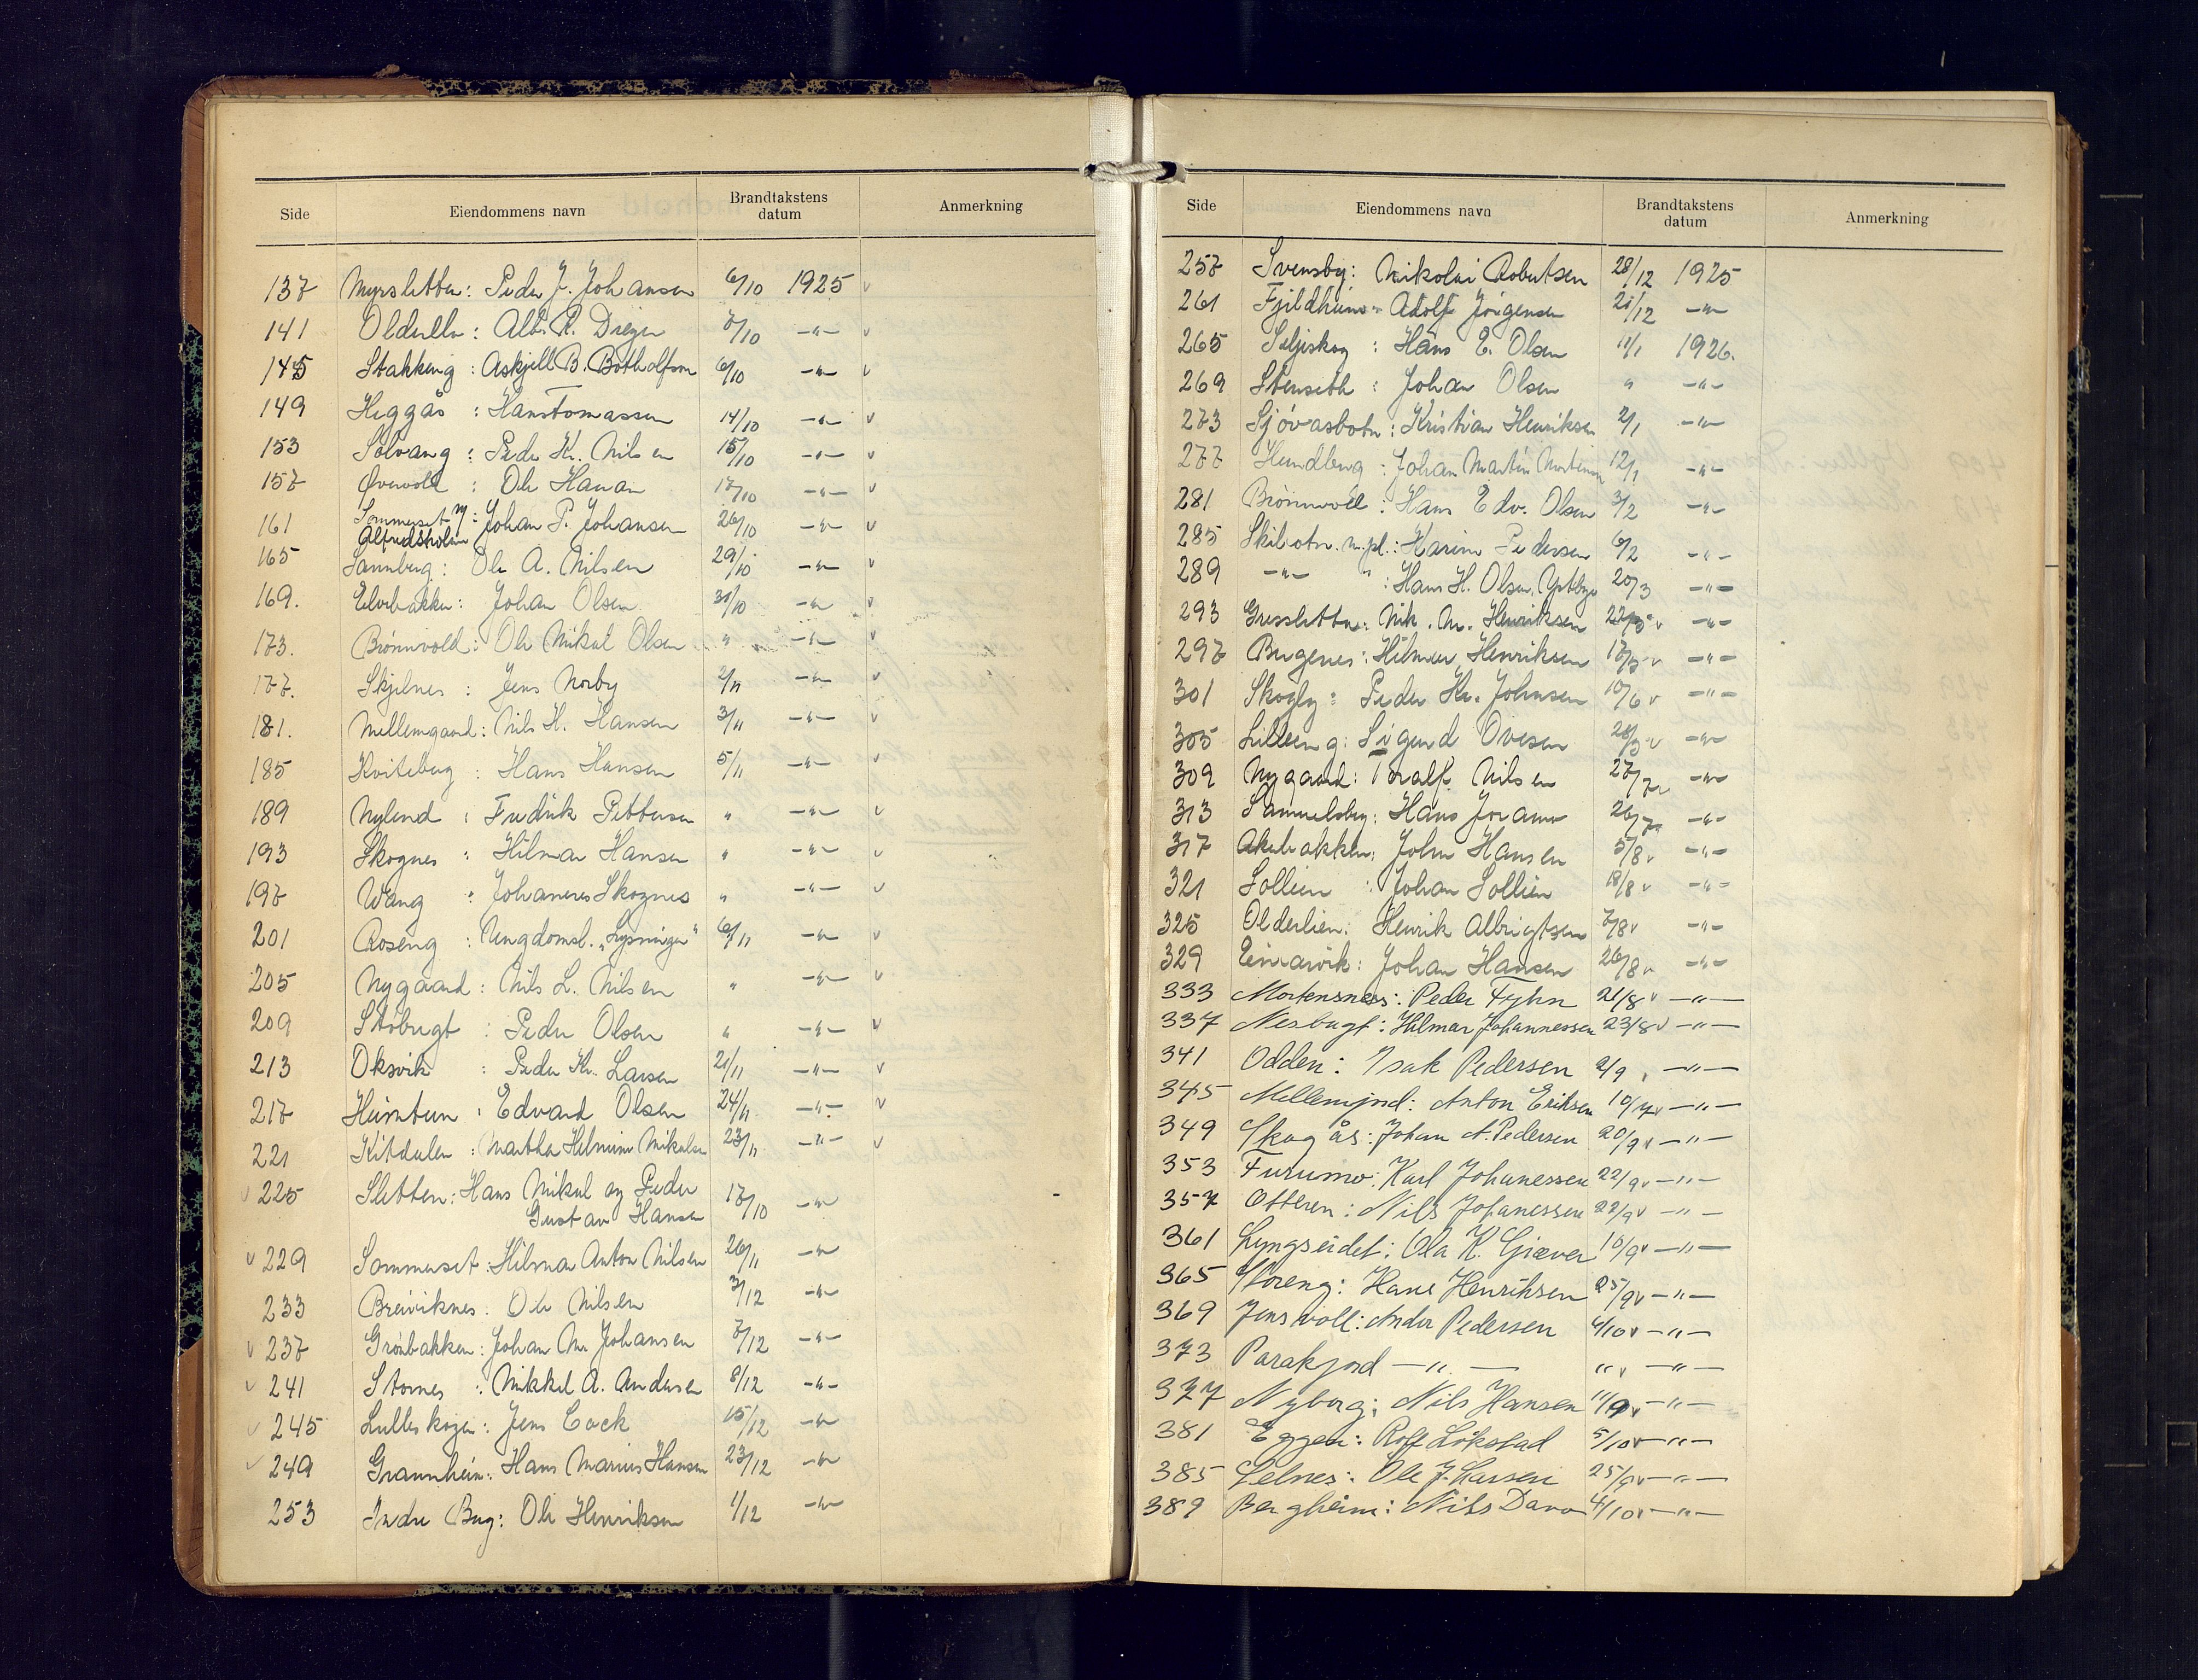 Side Eiendommens navn Brandtakstens datum Anmerkning
137 Myrsletten: Peder J. Johansen 6/10 1925 v
141 Olderelv: Alb. R. Dreyer 7/10 -"- v
145 Stakkeng: Askjell B. Botholfsen 6/10 -"- v
149 Heggås: Hans Tomassen 14/10 -"- v
153 Solvang: Peder Kr. Nilsen 15/10 -"- v
157 Øvervold: Ole Hanan 17/10 -"- v
161 Sommerset og Alfredsholm: Johan P. Johansen 26/10 -"- v
165 Sannberg: Ole A. Nilsen 29/10 -"- v
169. Elvebakken: Johan Olsen 31/10 -"- v
173. Brönnvold: Ole Mikal Olsen " -"- v
177. Skjelnes: Jens Norby 2/11 -"- v
181. Mellemgaard: Nils H. Hansen 3/11 -"- v
185 Kviteberg: Hans Hansen 5/11 -"- v
189 Nylend: Fredrik Pettersen " -"- v
193 Skognes: Hilmar Hansen " -"- v
197 Wang: Johannes Skognes " -"- v
201 Roseng: Ungdomsl. „Lysningen" 6/11 -"- v
205 Nygaard: Nils L. Nilsen " -"- v
209 Stöbugt: Peder Olsen " -"- v
213 Oksvik: Peder Kr. Larsen 21/11 -"- v
217 Heimtun: Edvard Olsen 24/11 -"- v
221 Kitdalen: Martha Helmine Mikalsen 23/11 -"- v
v 225 Sletten: Hans Mikal og Peder
Gustav Hansen 17/10 -"-
v 229 Sommerset: Hilmar Anton Nilsen 26/11 -"-
233 Breiviknes: Ole Nilsen 3/12 -"-
v 237 Grönbakken: Johan M. Johansen 7/12 -"-
v 241 Stornes: Mikkel A. Andersen 8/12 -"-
v 245 Lulleskogen: Jens Cock 15/12 -"-
v 249 Grannheim: Hans Marius Hansen 23/12 -"-
253 Indre Bug: Ole Henriksen 1/12 -"-
Side Eiendommens navn Brandtakstens datum Anmerkning
257 Svensby: Nikolai Robertsen 28/12 1925
261 Fjeldheim: Adolf Jörgensen 21/12 -"-
265 Seljeskog: Hans E. Olsen 11/1 1926.
269 Stenseth: Johan Olsen " -"-
273 Sjövasbotn: Kristian Henriksen 2/1 -"-
277 Hundberg: Johan Martin Mortensen 12/1 -"-
281 Brönnvoll: Hans Edv. Olsen 3/2 -"-
285 Skibotn. m.pl.: Karine Pedersen 6/2 -"-
289 -"- ": Hans H. Olsen, Yttby 20/3 -"-
293 Gressletten: Nik. M. Henriksen 22/5 v -"-
297 Bugenes: Hilmar Henriksen 17/5 v -"-
301 Skogly: Peder Kr. Johnsen 10/6 v -"-
305 Lilleeng: Sigurd Ovesen 28/5 v -"-
309 Nygaard: Toralf Nilsen 27/7 v -"-
313 Samuelsberg: Hans Joramo 26/7 v -"-
317 Akebakken: John Hansen 5/8 v -"-
321 Sollien: Johan Sollien 18/8 v -"-
325 Olderlien: Henrik Albrigtsen 7/8 v -"-
329 Einarvik: Johan Hansen 26/8 v -"-
333 Mortensnes: Peder Fyhn 21/8 v -"-
337 Nesbugt: Hilmar Johannessen 23/8 v -"-
341 Odden: Isak Pedersen 2/9 , -"-
345 Mellemjord: Anton Eriksen 10/7 v -"-
349 Skogås: Johan A. Pedersen 20/9 v -"-
353 Furumo: Karl Johanessen 22/9 v -"-
357 Otteren: Nils Johanessen 22/9 v -"-
361 Lyngseidet: Ola K. Giæver 16/9 v -"-
365 Storeng: Hans Henriksen 25/9 v -"-
369 Jensvoll: Ander Pedersen 4/10 v -"-
373 Parakjord -"- " v -"-
377 Nyborg: Nils Hansen 11/9 v -"-
381 Eggen: Rolf Lökstad 5/10 v -"-
385 Lelnes: Ole J. Larsen 25/9 v -"-
389 Bergheim: Nils Davo 4/10 v -"-